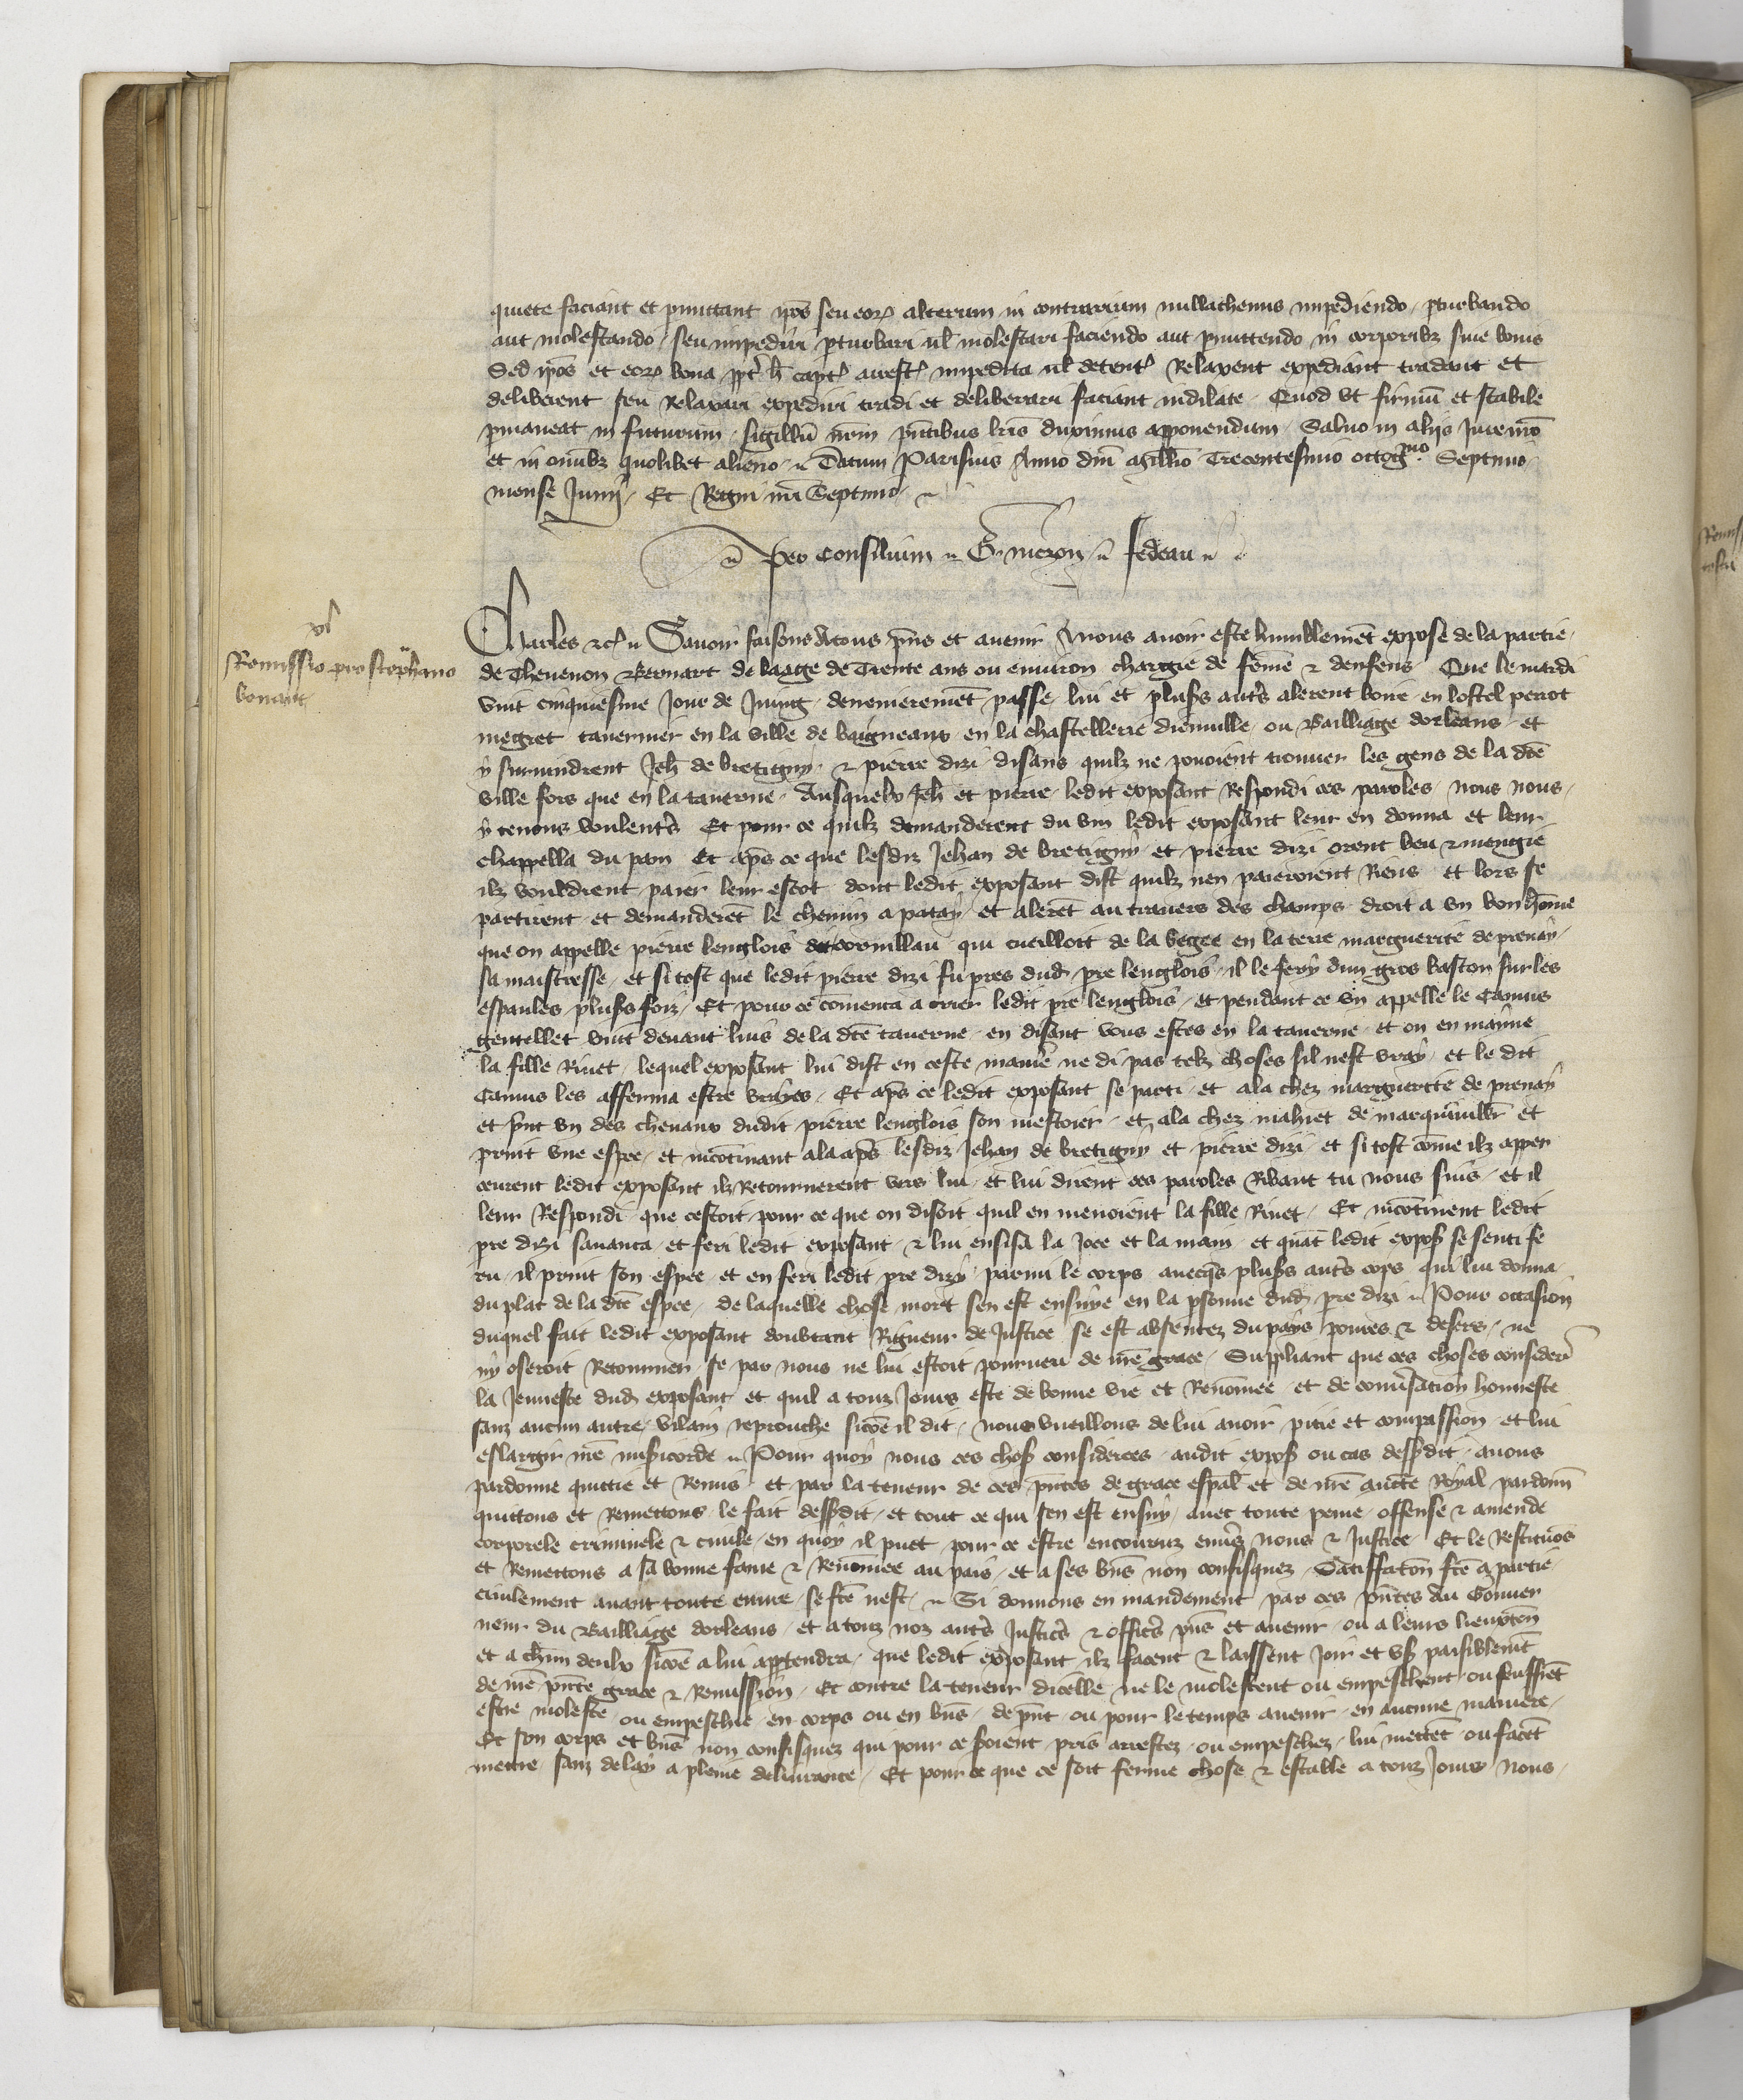 quiete faciant et p̃mittant ip̃os seu eoꝝ alterum in contrarium nullathenus impediendo, ꝑturbando
aut molestando, seu impediri ꝑturbari ul̃ molestari faciendo aut ꝑmittendo in corporibꝫ siue bonis
Sed ip̃os et eoꝝ bona ꝓpt̃ h̃ capt̃ arrest̃ impedita ul̃ detent̃ Relaxent expediant tradant et
deliberent seu Relaxari expediri tradi et deliberari faciant indilate. Quod vt firmũ et stabile
ꝑmaneat in futurum, sigillũ nr̃m pñtibus lr̃is duximus apponendum. Saluo in aliis Jure nr̃o
et in om̃ibꝫ quolibet alieno. Datum Parisius Anno dñi Mill̃io Trecentesimo octog.mo Septimo,
mense Junij, Et Regni nr̃i Septimo.
Per consilium G. meron fedeau
Charles ⁊c̃ Sauoir faisons A tous p̃ns et auenir Anous auoir este humblemẽt expose de la partie
de Theuenon Bernart de laage de Trente ans ou enuiron chargie de fẽme ⁊ denfens Que le mardi
vint cinquiesme Jour de Juing derrenieremẽt passe lui et plus̃s aut̃s alerent boire en lostel perrot
megret tauernier en la ville de baigneaux en la chastellerie dienuille ou Bailliage dorleans, et
y suruindrent Jeh̃ de bretigny ⁊ pierre dizi disans quilz ne pouoient trouuer les gens de la dc̃e
ville fors que en la tauerne. Ausquelx Jeh̃ et pierre, ledit exposant Respondi ces paroles, nous nous,
y tenons voulent̃s Et pour ce quilz demanderent du vin ledit exposant leur en donna et leur
chappella du pain Et ap̃s ce que lesdiz Jehan de bretigny et pierre dizi orent beu ⁊ mengie
ilz vouldrent paier leur escot dont ledit exposant dist quilz nen paieroient Riens et lors se
partirent et demanderẽt le chemin a patay, et alerẽt au trauers des champs droit a vn bon hõme
que on appelle pierre lenglois dit cornillau qui cueilloit de la vegce en la terre marguerite de prenay,
sa maistresse, et si tost que ledit pierre dizi fu pres dud̃ pr̃e lenglois, il le fery dun gros baston sur les
espaules plus̃s foiz, Et pour ce cõmenca a crier ledit pr̃e lenglois, et pendant ce vn appelle le Camus
gentellet vint deuant luis de la dc̃e tauerne en disant vous estes en la tauerne et on en maine
la fille Riuet, lequel exposant lui dist en ceste manie͛ ne di pas telz choses sil nest vray, et le dit
Camus les afferma estre vrayes. Et ap̃s ce ledit exposant se parti et ala chez marguerite de prenay
et p̃nt vn des cheuaux dudit pierre lenglois son mestoier, et ala chez mahiet de et
print vne espee, et incõtinant ala ap̃s lesdiz Jehan de bretigny et pierre dizi et si tost cõme ilz apper
ceurent ledit exposant ilz Retournerent vers lui, et lui dirent ces paroles Ribaut tu nous suis, et il
leur Respondi que cestoit pour ce que on disoit quil en menoient la fille Riuet. Et incõtinent ledit
pr̃e dizi sauanca, et feri ledit exposant ⁊ lui encisa la Joee et la main et quãt ledit expos̃ se senti fe
ru, il print son espee, et en feri ledit pr̃e dizy parmi le corps auecq̃s plus̃s aut̃s cops qui lui donna
du plat de la dc̃e espee, de laquelle chose mort sen est ensuye en la ꝑsonne dud̃ pr̃e dizi Pour occasion
duquel fait ledit exposant doubtant Rigueur de Justice se est absentez du pays poures ⁊ desers, ne
ny oseroit Retourner, se par nous ne lui estoit pourueu de nr̃e grace. Suppliant que ces choses considere͛
la Jeunesse dud̃ exposant et quil a touz Jours este de bonne vie et Renõmee et de conũsation honneste
sanz aucun autre vilain reprouche sicõe il dit, nous vueillons de lui auoir pitie et compassion et lui
eslargir nr̃e mis̃icorde Pour quoy nous ces chos̃ considerees audit expos̃ ou cas dess̃dit auons
pardonne quictie et Remis et par la teneur de ces pñtes de grace esp̃al et de nr̃e aucte͛ Royal pardonñ
quittons et Remettons le fait dess̃dit, et tout ce qui sen est ensuy, auec toute peine offense ⁊ amende
corporele criminele ⁊ ciuile, en quoy il puet pour ce estre encouruz enũs nous ⁊ Justice Et le Restituõs
et Remettons a sa bonne fame ⁊ Renõmee au pais, et a ses bñs non confisquez, Satiffatiõn fc̃e a partie,
ciuilement auant toute euure, se fc̃e nest. Si donnons en mandement par ces pñtes Au Gouuer
neur du Bailliage dorleans, et a touz noz aut̃s Justice͛s ⁊ office͛s p̃ns et auenir ou a leurs lieuxteñ
et a ch̃un deulx sicõe a lui app̃tendra, que ledit exposant ilz facent ⁊ laissent Joir et vs̃ paisiblemẽt
de nr̃e pñte grace ⁊ Remission, Et contre la teneur dicelle ne le molestent ou empeschent ou seuffrẽt
estre moleste ou empeschie en corps ou en bñs, de p̃nt ou pour le temps auenir en aucune maniere,
Et son corps et bñs non confisquez qui pour ce soient pris arrestez ou empeschez lui mettẽt ou facẽt
mettre sanz delay a pleine deliurance, Et pour ce que ce soit ferme chose ⁊ estable a touz Jours Nous,
Remissio pro stephano
bernart